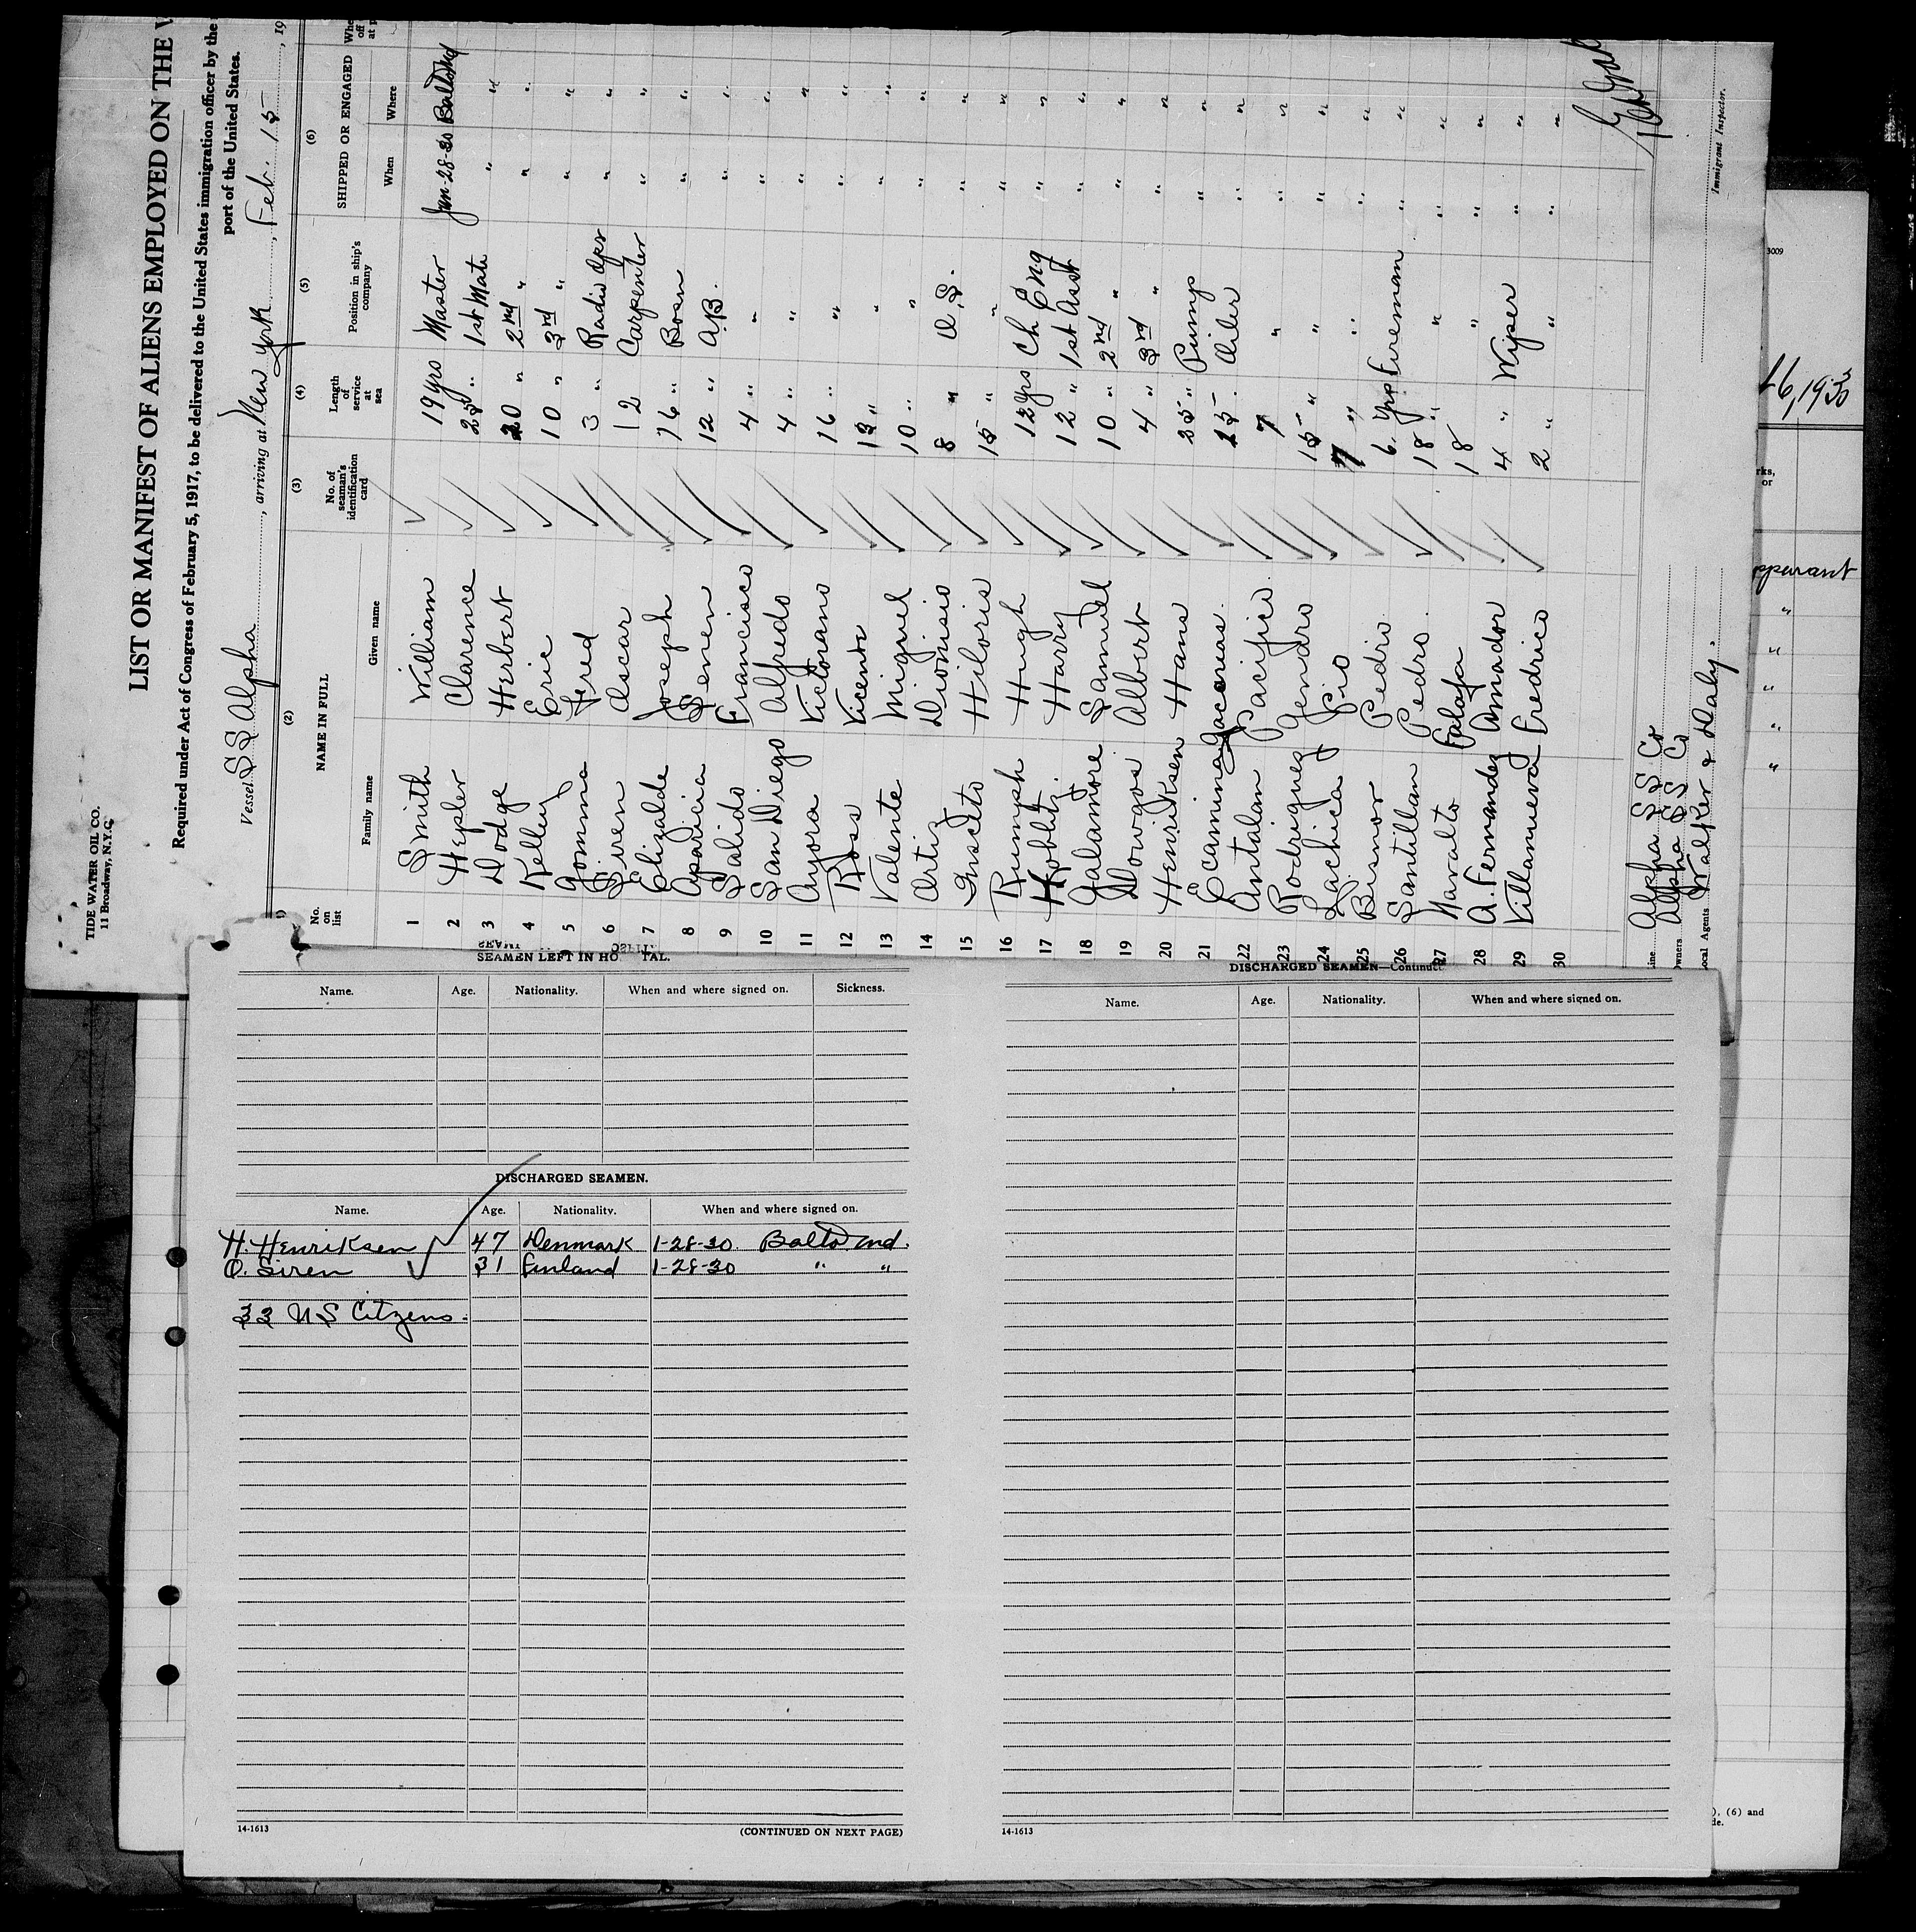 TIDE WATER OIL CO.
11 Broadway, N.Y.C.
LIST OR MANIFEST OF ALIENS EMPLOYED ON THE
Required under Act of Congress of February 5, 1917, to be delivered to the United States immigration officer by the
port of the United States.
Vessel SS Alpha, arriving at New York, Feb. 15, 19
(2) (3) (4) (5) (6)
No. on list NAME IN FULL No. of seaman's identification card Length of service at sea Position in ship's company SHIPPED OR ENGAGED
Family name Given name When Where
1 Smith William 19 yrs Master Jan-28-30 Balto Md
2 Hepler Clarence 25 " 1st Mate " "
3 Dodge Herbert 20 " 2nd " " "
4 Kelley Eric 10 " 3rd " " "
5 Fred 3 " Radio Opr " "
6 Siren Oscar 12 Carpenter " "
7 Elizalde Joseph 16 " Bosn " "
8 Aparicia Senen 12 " A.B. " "
9 Salido Francisco 4 " " " "
10 San Diego Alfredo 4 " " " "
11 Ayora Victorano 16 " " " "
12 Ross Vicente 13 " " " "
13 Valente Miguel 10 " " " "
14 Ortiz Dionisio 8 " O.S. " "
15 Insecto Hiloris 15 " " " "
16 Rumph Hugh 12 yrs Ch Eng " "
17 Hobbly Harry 12 " 1st Asst " "
18 Galamore Sammuel 10 " 2nd " " "
19 Dowgos Albert 4 " 3rd " " "
20 Henriksen Hans 25 " Pumps " "
21 Ecaminag 15 Oiler " "
22 Antalan Pacifico 7 " " "
23 Rodriguez Gendro 15 " " " "
24 Lachica Pio 7 " " " "
25 Bisnor Pedrio 6. Yrs Fireman " "
26 Santillan Pedro 18 " " " "
27 Navalto 18 " " "
28 A. Fernandez Amador 4 " Wiper " "
29 Villanueva Fredrico 2 " " " "
30
Line Alpha SS Co
Owners Alpha SS Co
Local Agents Walker & Daly.
Immigrant Inspector.
3009
16, 1930
"
"
"
"
"
), (6) and
SEAMEN LEFT IN HO TAL.
Name. Age. Nationality. When and where signed on. Sickness.
DISCHARGED SEAMEN.
Name. Age. Nationality. When and where signed on.
H. Henriksen 47 Denmark 1-28-30. Balto Md.
O. Siren 31 Finland 1-28-30 " "
33 US Citzens.
14-1613 (CONTINUED ON NEXT PAGE)
DISCHARGED SEAMEN—Continued
Name. Age. Nationality. When and where signed on.
14-1613